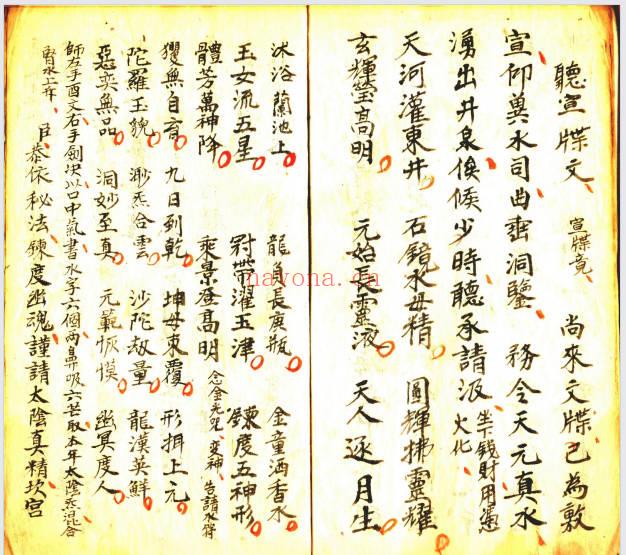 聽宣牒文 宣牒竟 尚來文牒已為敷
宣仰兾水司曲垂洞鑒 務令天元真水
湧出井泉俟候少時聽承請派 牒錢財用憑火化
天河灌東井 石鏡水母精 圓輝拂靈耀
玄輝瑩高明 元始長靈液 天人逐月生
沐浴蘭池上 龍負長庚瓶 金童洒香水
玉女流五星 冠帶濯玉津 鍊度五神形
體芳萬神降 乘景登高明 念金光咒 變神 告請水符
玃無自育 九日到乾 坤母東覆 形攝上元
陀羅玉貌 渺炁合雲 沙陀劫量 龍漢英鮮
惡奕無品 洞妙至真 元範恢漠 幽冥度人
師左手酉文右手劍決以口中氣書水字六個兩鼻吸六炁取本年太陰炁混合
腎水上升 臣恭依秘法鍊度幽魂謹請太陰真精坎宮
nayona.cn